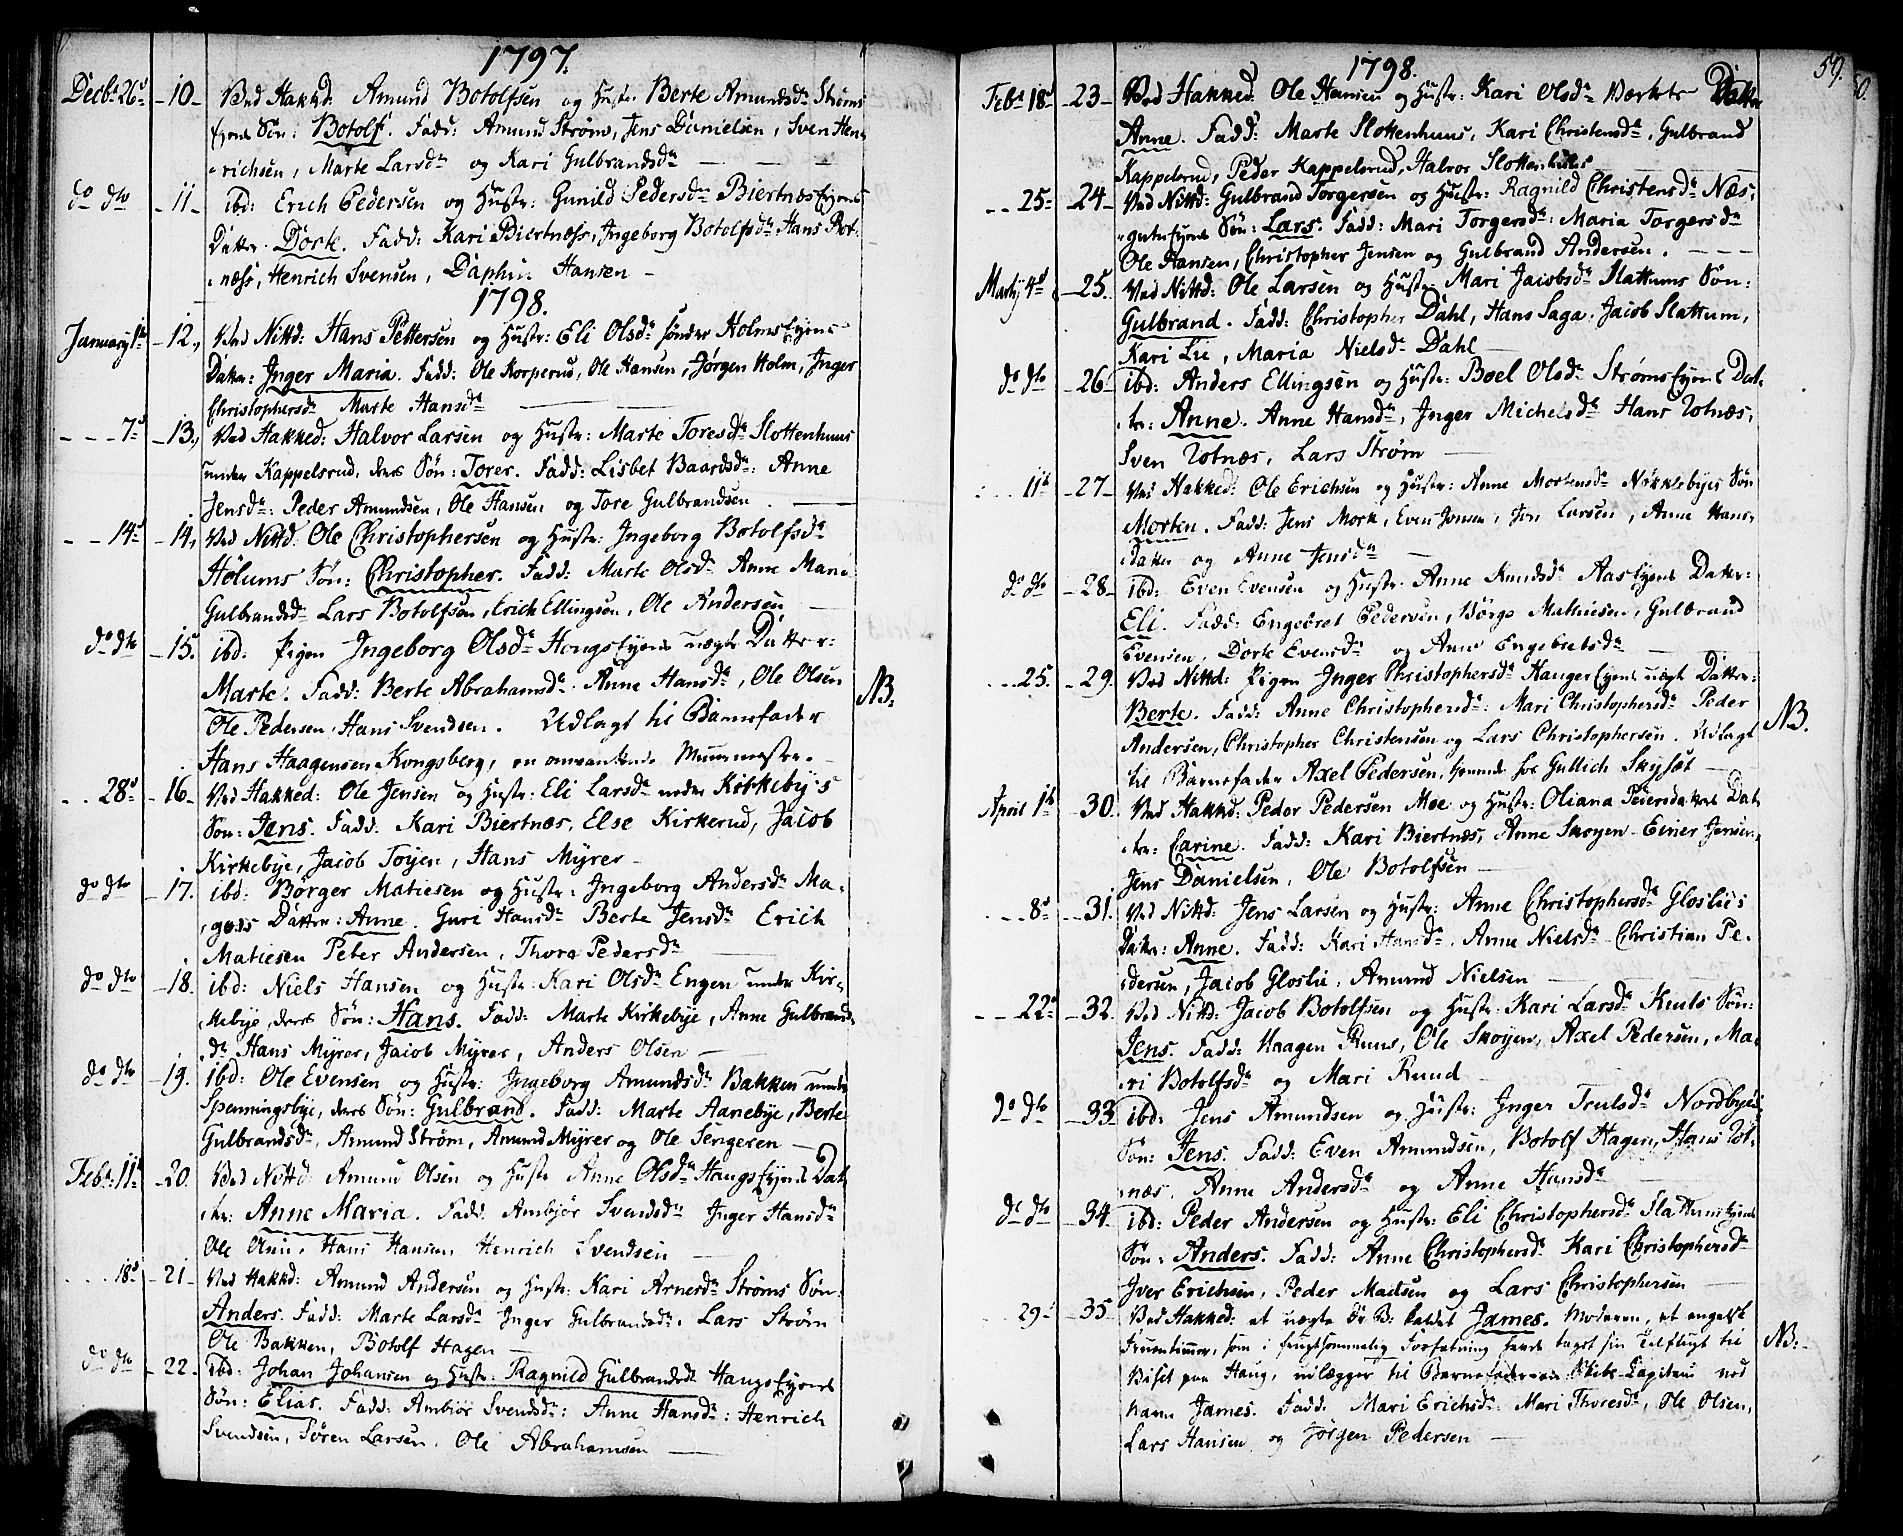 1797.
Decbr 26d -10- Ved Hakkd: Amund Botolfsen og Hustr: Berte Amundsdr Strøms
Eyens Søn: Botolf. Fadd: Amund Strøm, Jens Danielsen, Sven Hen-
richsen, Marte Larsdr og Kari Gulbrandsdr
do dto -11- ibd: Erich Pedersen og Hustr: Gunild Pedersdr Biertnæs Eyens
Datter: Dorte. Fadd: Kari Biertnæss, Ingeborg Botolfsdr Hans Rot-
næss, Henrich Svensen, Daphin Hansen
1798.
January 1te -12., Ved Nittd: Hans Pettersen og Hustr: Eli Olsdr sønder Holms Eyens
Datter: Inger Maria. Fadd: Ole Korperud, Ole Hansen, Jørgen Holm, Inger
Christophersdr Marte Hansdr
- - - 7d -13., Ved Hakked: Halvor Larsen og Hustr: Marte Toresdr Slottenhuus
under Kappelsrud, deres Søn: Torer. Fadd: Lisbet Baardsdr: Anne
Jensdr: Peder Amundsen, Ole Hansen og Tore Gulbrandsen
- - 14d -14., Ved Nittd: Ole Christophersen og Hustr: Ingeborg Botolfsdr
Hølums Søn: Christopher. Fadd: Marte Olsdr Anne Marie
Gulbrandsdr Lars Botolfsen, Erich Ellingsen, Ole Andersen
do dto -15. ibd: Pigen Ingeborg Olsdr Hougs Eyens uægte Datter:
Marte. Fadd: Berte Abrahamsdr. Anne Hansdr, Ole Olsen
Ole Pedersen, Hans Svendsen. Udlagt til Barnefader
NB:
Hans Haagensen Kongsberg, en omvankende Muurmester.
. . 28d -16- Ved Hakked: Ole Jensen og Hustr: Eli Larsdr under Kirkeby's
Søn: Jens. Fadd: Kari Biertnæs, Else Kirkerud, Jacob
Kirkebye, Jacob Toyen, Hans Myrer
do dto -17. ibd: Børger Matiesen og Hustr: Ingeborg Andersdr Ma-
geos Datter: Anne. Guri Hansdr Berte Jensdr Erich
Matiesen Peter Andersen, Thora Pedersdr
do dto -18. ibd: Niels Hansen og Hustr: Kari Olsdr Engen under Kir-
kebye, deres Søn: Hans. Fadd: Marte Kirkebye, Anne Gulbrands-
dr Hans Myrer, Jacob Myrer, Anders Olsen
do dto -19. ibd: Ole Evensen og Hustr: Ingeborg Amundsdr Bakken under
Spenningsbye, deres Søn: Gulbrand. Fadd: Marte Aanebye, Berte
Gulbrandsdr, Amund Strøm, Amund Myrer og Ole Sengeren
Febr: 11te -20. Ved Nittd: Amund Olsen og Hustr Anne Olsdr Haugs Eyens Dat-
ter: Anne Maria. Fadd: Ambjør Svendsdr Inger Hansdr
Ole Hans Hansen Henrich Svendsen
. . . . 18d -21- Ved Hakkd: Amund Andersen og Hustr: Kari Arnesdr Strøms Søn:
Anders. Fadd: Marte Larsdr Inger Gulbrandsdr. Lars Strøm
Ole Bakken, Botolf Hagen
do dto -22. ibd: Johan Johansen og Hustr: Ragnild Gulbrandsdr Haugs Eyens
Søn: Elias. Fadd: Ambiør Svendsdr: Anne Hansdr: Henrich
Svendsen, Søren Larsen, Ole Abrahamsen
59.
1798.
Febr 18d -23- Ved Hakked: Ole Hansen og Hustr: Kari Olsdr Værkets Datter
Anne. Fadd: Marte Slottenhuus, Kari Christensdr, Gulbrand
Kappelsrud, Peder Kappelsrud, Halvor Slottenhuus
. . 25d -24- Ved Nittd: Gulbrand Torgersen og Hustr: Ragnild Christensdr Næs-
Eyens Søn: Lars. Fadd: Mari Torgersdr: Maria Torgersdr
Ole Hansen, Christopher Jensen og Gulbrand Andersen.
Martij 4d -25. Ved Nittd: Ole Larsen og Hustr: Mari Jacobsdr Slattums Søn:
Gulbrand. Fadd: Christopher Dahl, Hans Saga, Jacob Slattum,
Kari Lie, Maria Nielsdr Dahl
do dto -26- ibd: Anders Ellingsen og Hustr: Boel Olsdr Strøms Eyens Dat-
ter: Anne. Anne Hansdr, Inger Michelsdr Hans Rotnæs,
Sven Rotnæs, Lars Strøm
. . . 11te -27- Ved Hakked: Ole Erichsen og Hustr: Anne Mortensdr Nökklebyes Søn
Morten. Fadd: Jens Mork, Even Jonsen, Jon Larsen, Anne Hans-
datter og Anne Jensdr
do dto -28- ibd: Even Evensen og Hustr: Anne Knudsdr Aas Eyens Datter:
Eli. Fadd: Engebret Pedersen, Børge Mathiesen, Gulbrand
Evensen, Dorte Evensdr og Anne Engebretsdr
. . . 25. -29. Ved Nittd: Pigen Inger Christophersdr Hauger Eyens uægte Datter:
Berte. Fadd: Anne Christophersdr: Mari Christophersdr Peder
Andersen, Christopher Christensen og Lars Christophersen. Udlagt
NB.
til Barnefader Axel Pedersen, tienende hos Gullich Skyset
April 1te -30. Ved Hakkd: Peder Pedersen Moe og Hustr: Oliana Peiersdatters Dat-
ter: Carine. Fadd: Kari Biertnæs, Anne Skoyen Einer Jensen,
Jens Danielsen, Ole Botolfsen
. . . 8d -31. Ved Nittd: Jens Larsen og Hustr: Anne Christophersdr Gloslies
Datter: Anne. Fadd: Kari Hansdr. Anne Nielsdr Christian Pe-
dersen, Jacob Gloslie, Amund Nielsen
- - 22d -32. Ved Nittd: Jacob Botolfsen og Hustr: Kari Larsdr Ruuds Søn:
Jens. Fadd: Haagen Ruus, Ole Skoyen, Axel Pedersen, Ma-
ri Botolfsdr og Mari Ruud
do dto -33 ibd: Jens Amundsen og Hustr: Inger Trulsdr Nordbyes
Søn: Jens. Fadd: Even Amundsen, Botolf Hagen, Hans Rot-
næs. Anne Andersdr og Anne Hansdr
do dto -34. ibd: Peder Andersen og Hustr: Eli Christophersdr Slattums Eyens
Søn: Anders. Fadd: Anne Christophersdr Kari Christophersdr
Iver Erichsen, Peder Madsen og Lars Christophersen
29d 35 Ved Hakked: et uægte Dr: B: kaldet James. Moderen, et engelsk
Fruentimmer, som i frugtsommelig Forfatning havde taget sin Tilflugt til
NB:
Huset paa Haug, udlægger til Barnefader en Skibs-Capitain ved
Navn James. Fadd: Mari Erichsdr: Mari Thoresdr, Ole Olsen,
Lars Hansen og Jørgen Pedersen